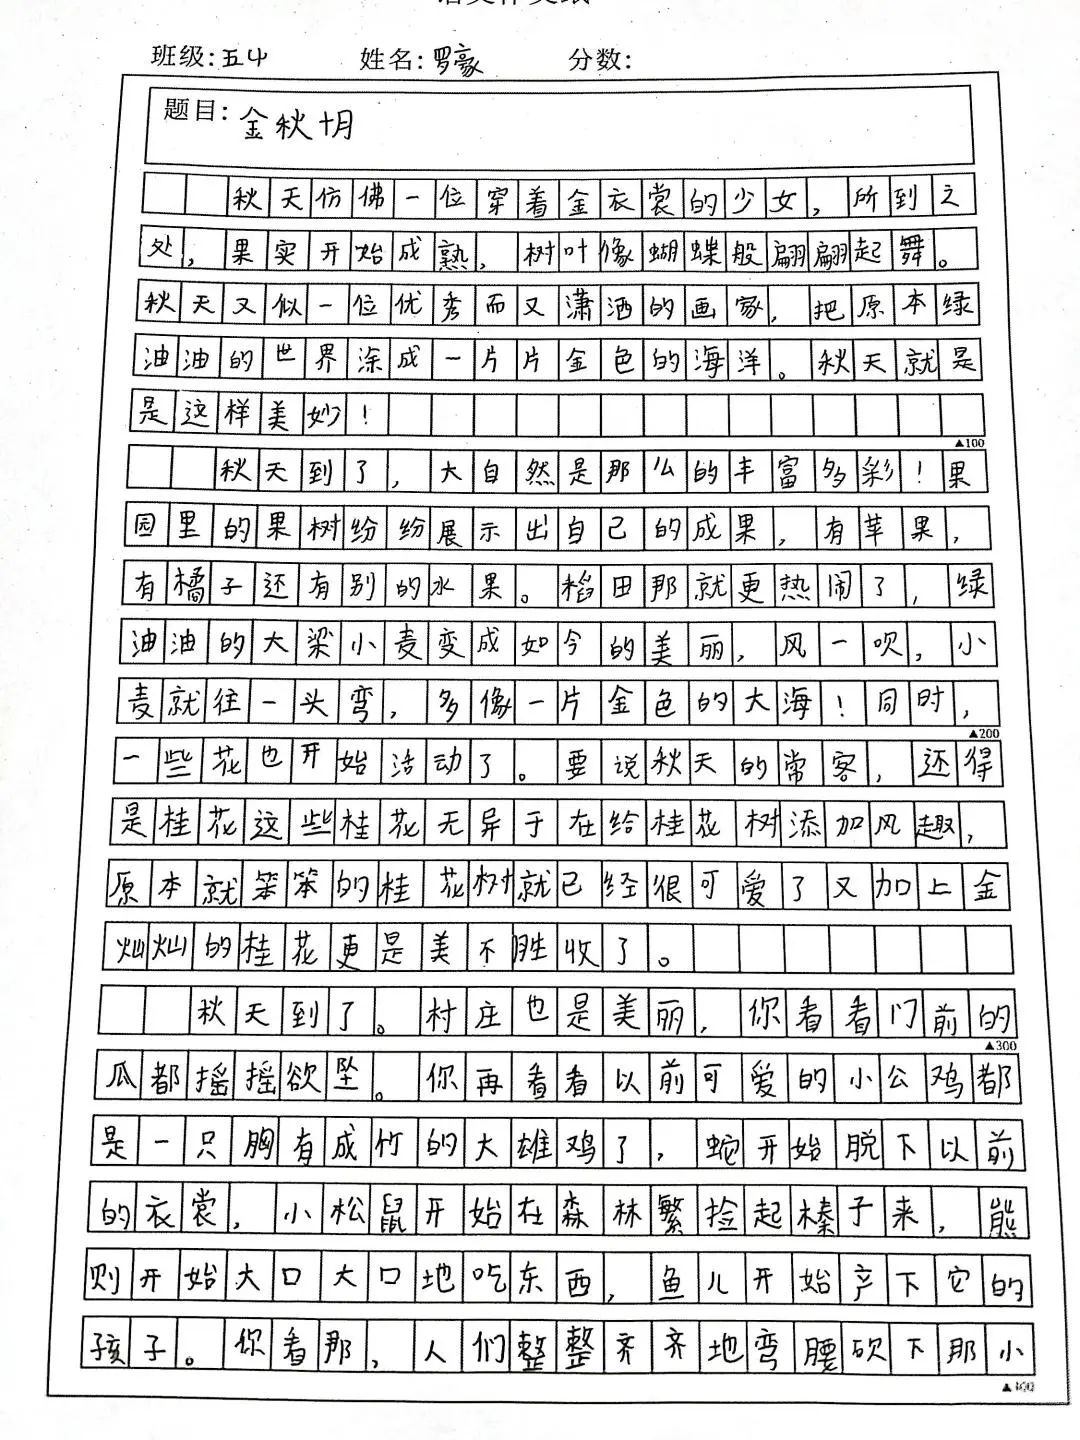 班级:五4 姓名:罗豪 分数:
题目:金秋十月
秋天仿佛一位穿着金衣裳的少女，所到之
处，果实开始成熟，树叶像蝴蝶般翩翩起舞。
秋天又似一位优秀而又潇洒的画家，把原本绿
油油的世界涂成一片片金色的海洋。秋天就是
是这样美妙！
▲100
秋天到了，大自然是那么的丰富多彩！果
园里的果树纷纷展示出自己的成果，有苹果，
有橘子还有别的水果。稻田那就更热闹了，绿
油油的大梁小麦变成如今的美丽，风一吹，小
麦就往一头弯，多像一片金色的大海！同时，
▲200
一些花也开始活动了。要说秋天的常客，还得
是桂花这些桂花无异于在给桂花树添加风趣，
原本就笨笨的桂花树就已经很可爱了又加上金
灿灿的桂花更是美不胜收了。
秋天到了。村庄也是美丽，你看看门前的
▲300
瓜都摇摇欲坠。你再看看以前可爱的小公鸡都
是一只胸有成竹的大雄鸡了，蛇开始脱下以前
的衣裳，小松鼠开始在森林繁捡起榛子来，熊
则开始大口大口地吃东西，鱼儿开始产下它的
孩子。你看那，人们整整齐齐地弯腰砍下那小
▲400